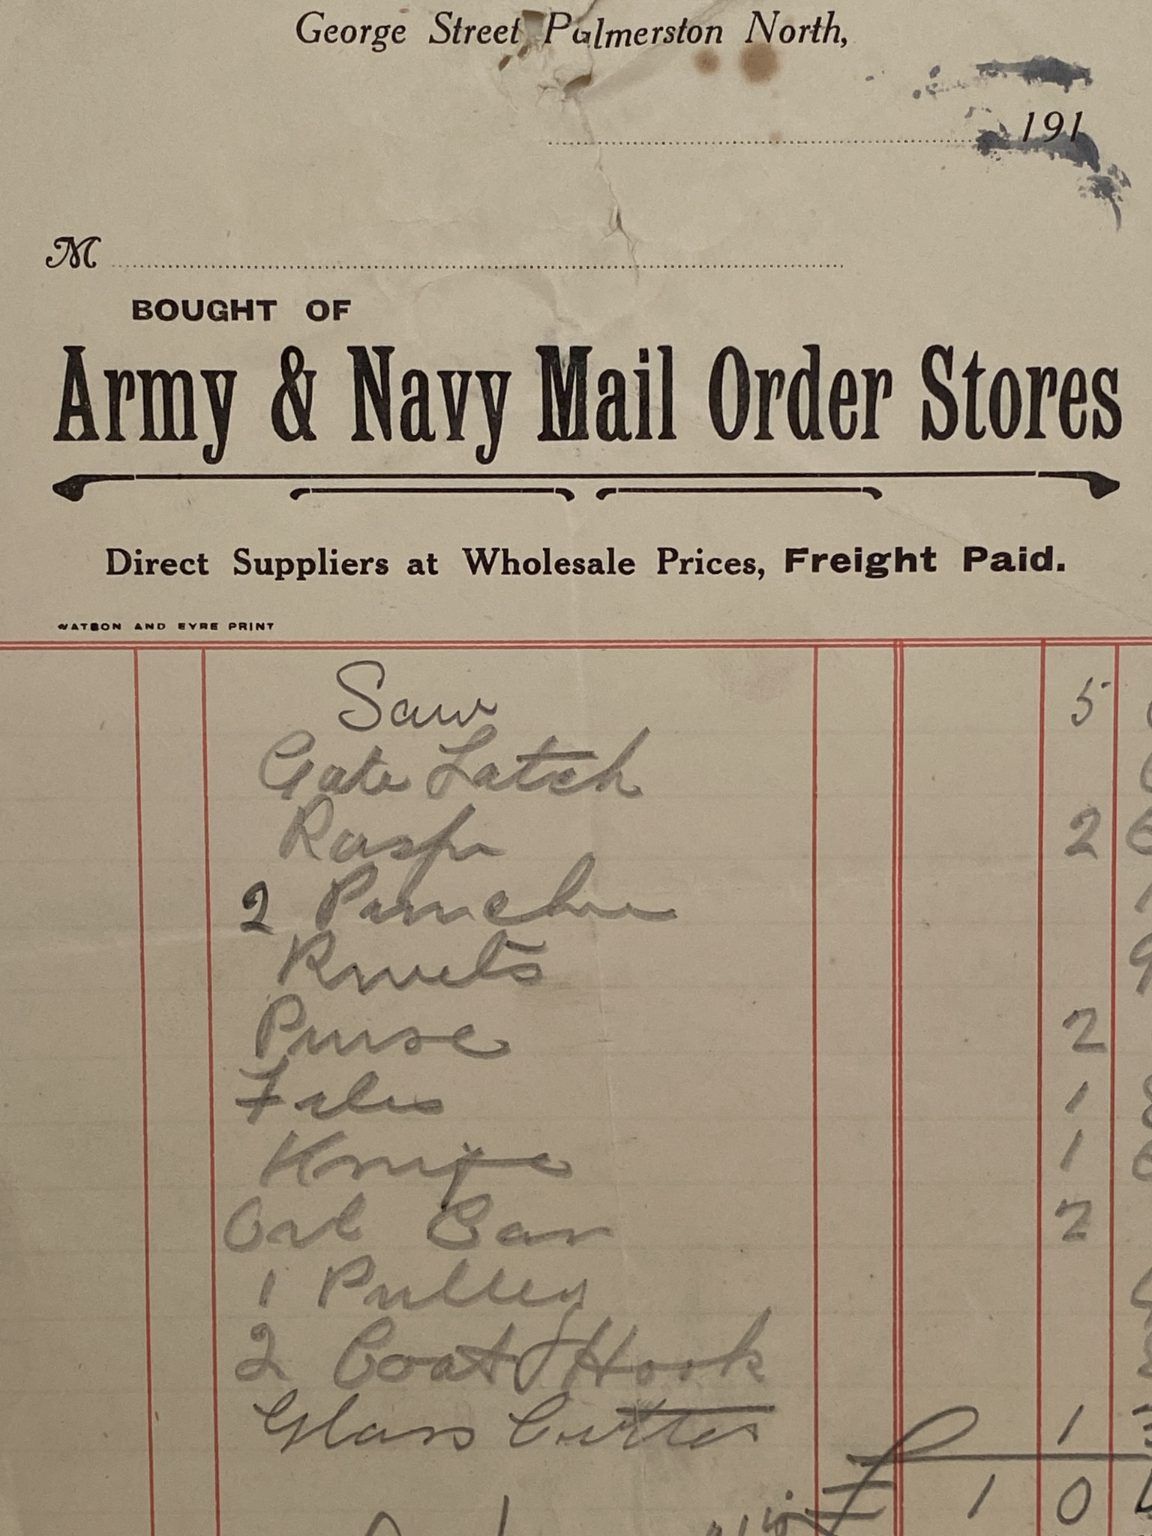 George Street Palmerston North,
191
M
BOUGHT OF
Army & Navy Mail Order Stores
Direct Suppliers at Wholesale Prices, Freight Paid.
WATSON AND EYRE PRINT
Saw 5
Gate Latch
Rasp 2 6
2 Punches
Rivets 9
Purse 2
Files 1
Knife 1
Oil Can 2
1 Pulley
2 Coat Hook
Glass Cutter 1 3
£ 1 0